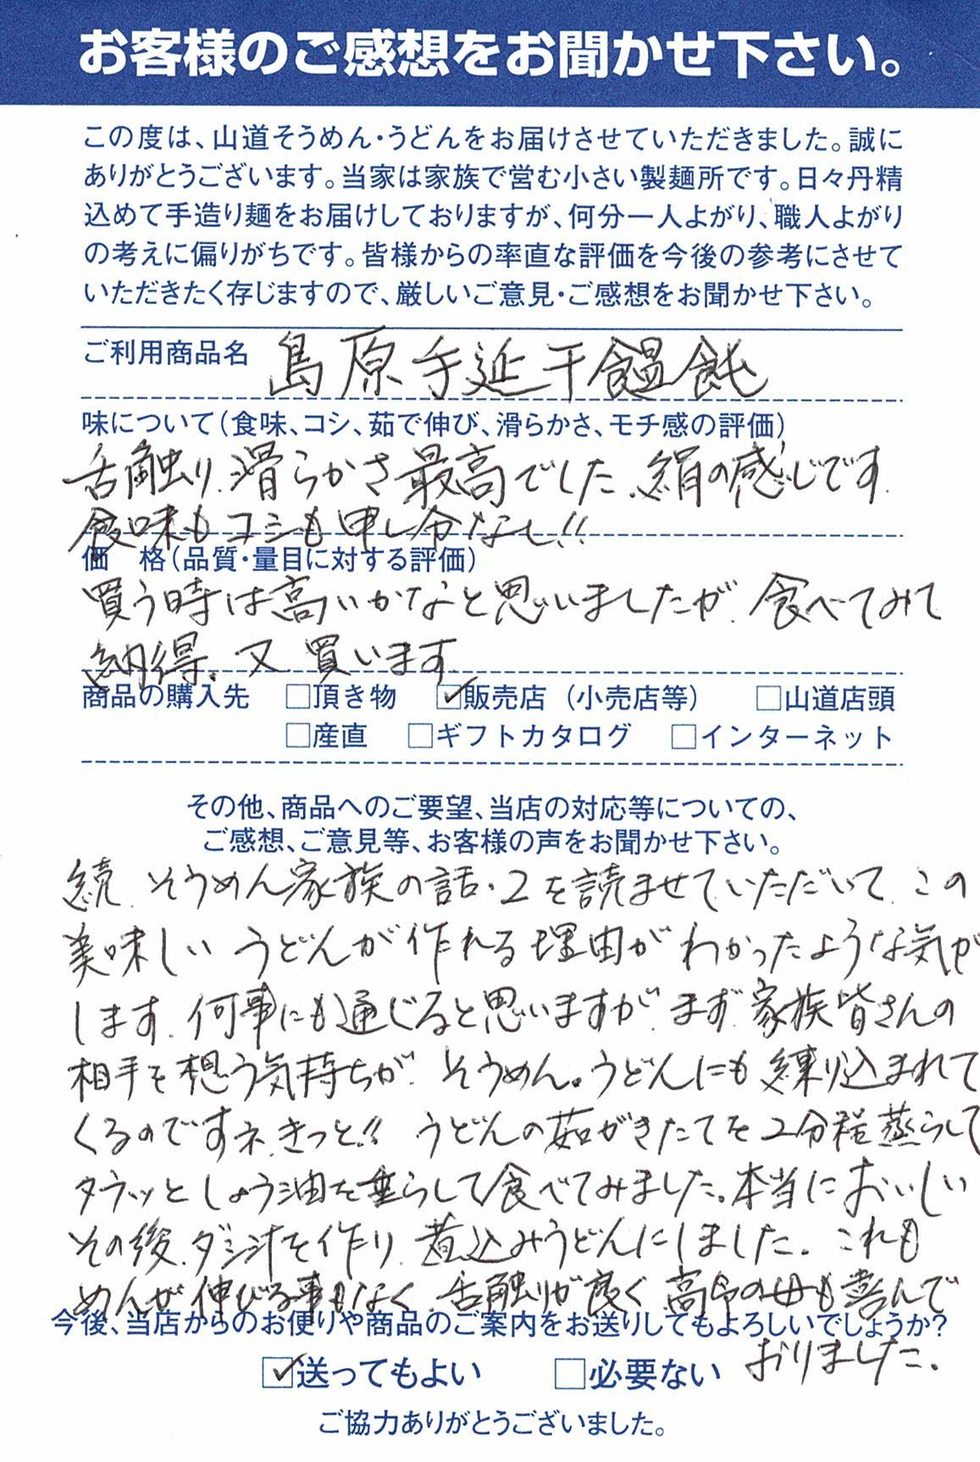 お客様のご感想をお聞かせ下さい。
この度は、山道そうめん・うどんをお届けさせていただきました。誠に
ありがとうございます。当家は家族で営む小さい製麺所です。日々丹精
込めて手造り麺をお届けしておりますが、何分一人よがり、職人よがり
の考えに偏りがちです。皆様からの率直な評価を今後の参考にさせて
いただきたく存じますので、厳しいご意見・ご感想をお聞かせ下さい。
ご利用商品名 島原手延干饂飩
味について(食味、コシ、茹で伸び、滑らかさ、モチ感の評価)
舌触り、滑らかさ最高でした、絹の感じです。
食味もコシも申し分なし!!
価 格(品質・量目に対する評価)
買う時は高いかなと思いましたが、食べてみて
納得。又買います。
商品の購入先 □頂き物 ☑販売店(小売店等) □山道店頭
□産直 □ギフトカタログ □インターネット
その他、商品へのご要望、当店の対応等についての、
ご感想、ご意見等、お客様の声をお聞かせ下さい。
続、そうめん家族の話・2を読ませていただいて、この
美味しいうどんが作れる理由がわかったような気が
します。何事にも通じると思いますが、まず家族皆さんの
相手を想う気持ちが、そうめん。うどんにも練り込まれて
くるのですネ、きっと!! うどんの茹がきたてを2分程蒸らして
タラッとしょう油を垂らして食べてみました。本当においしい
その後、ダシ汁を作り、煮込みうどんにしました。これも
めんが伸びる事もなく、舌触りが良く高令の母も喜んで
おりました。
今後、当店からのお便りや商品のご案内をお送りしてもよろしいでしょうか?
☑送ってもよい □必要ない
ご協力ありがとうございました。